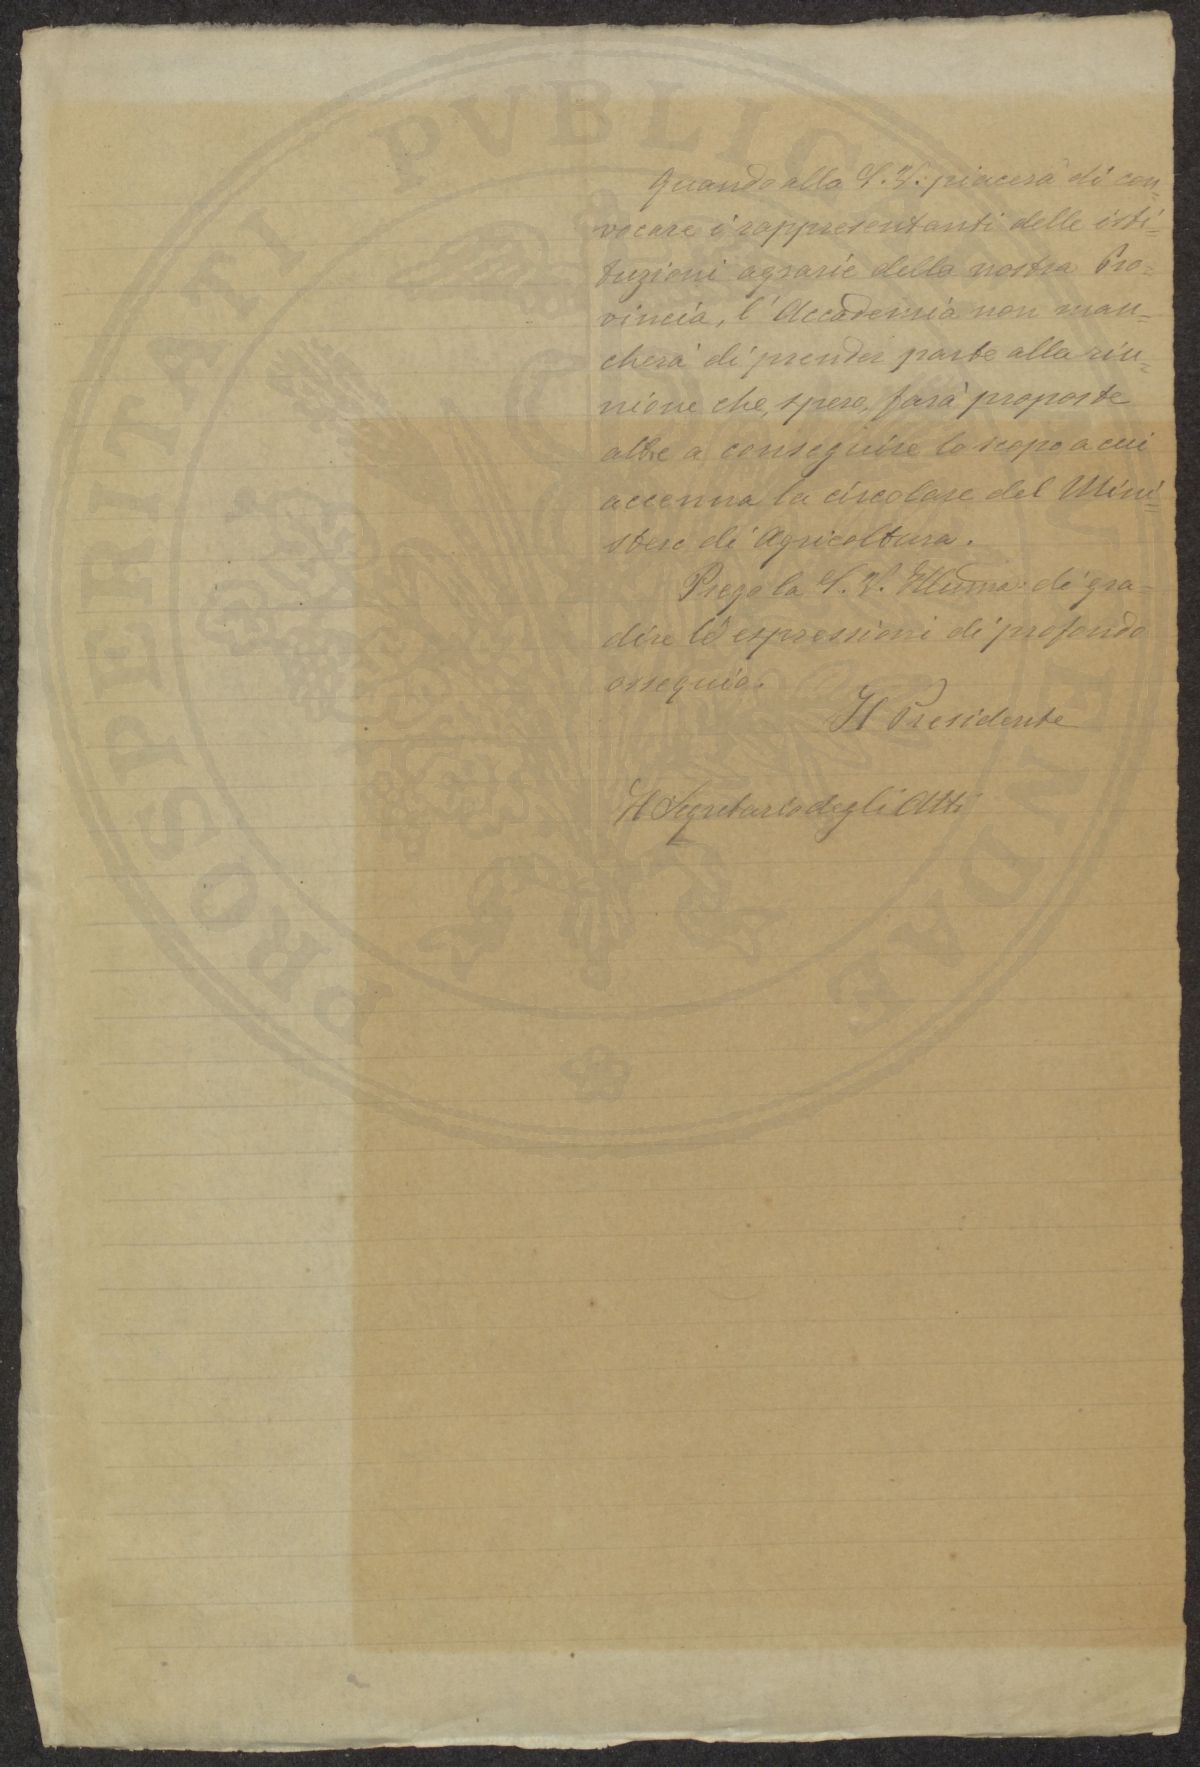 Quando alla S. V. piacerà di con-
vocare i rappresentanti delle isti-
tuzioni agrarie della nostra Pro-
vincia, l'Accademia non man-
cherà di prender parte alla riu-
nione che, spero, farà proposte
atte a conseguire lo scopo a cui
accenna la circolare del Mini-
stero di Agricoltura.
Prego la S. V. Illuma: di gra-
dire le espressioni di profondo
ossequio.
Il Presidente
Il Segretario degli Atti
PROSPERITATI PVBLICAE AVGENDAE